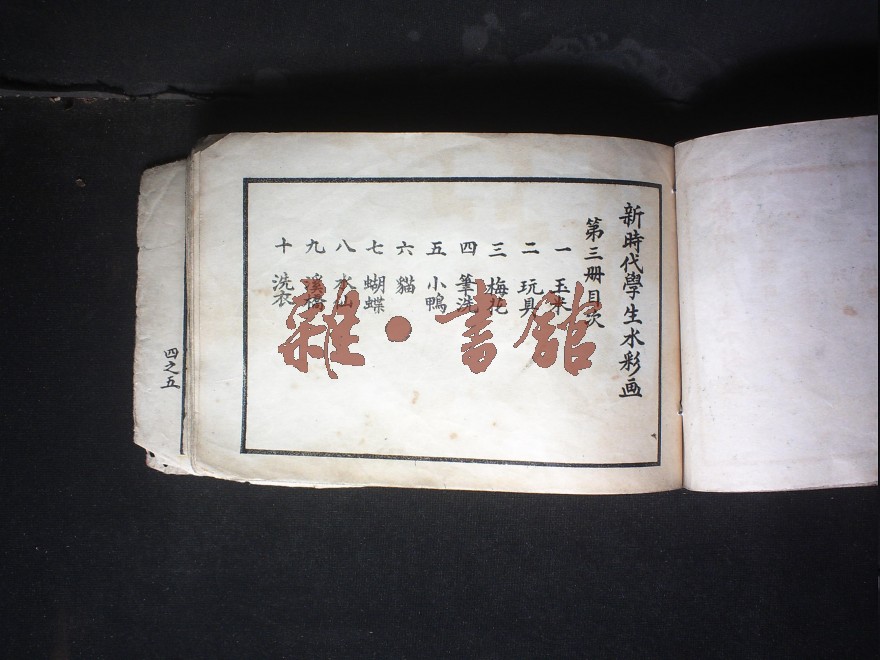 新時代學生水彩画
第三册目次
一 玉米
二 玩具
三 梅花
四 筆洗
五 小鴨
六 貓
七 蝴蝶
八 水仙
九 溪橋
十 洗衣
四之五
雜·書館